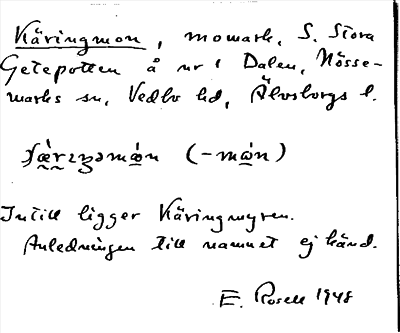 Käringmon, momark, S. Stora
Getepotten å nr 1 Dalen, Nösse-
marks sn, Vedbo hd, Älvsborgs l.
(-mòn)
Intill ligger Käringmyren.
Anledningen till namnet ej känd.
E. Rosell 1948